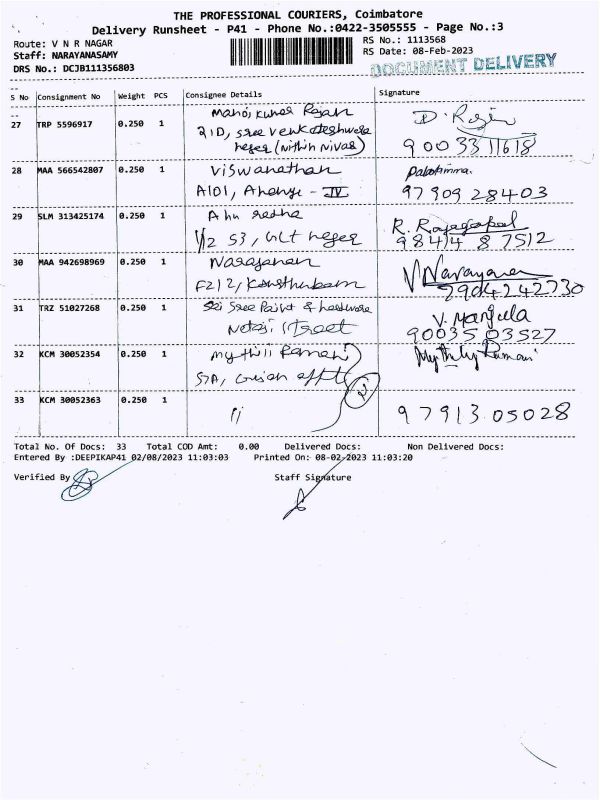 THE PROFESSIONAL COURIERS, Coimbatore
Delivery Runsheet - P41 - Phone No.:0422-3505555 - Page No.:3
Route: V N R NAGAR
Staff: NARAYANASAMY
DRS No.: DCJB111356803
RS No.: 1113568
RS Date: 08-Feb-2023
DOCUMENT DELIVERY
S No Consignment No Weight PCS Consignee Details Signature
27 TRP 5596917 0.250 1 Manoj Kumar Rajan
21D, Sree Venkateshwara
(Nithin Nivas)
90033 11618
28 MAA 566542807 0.250 1 Viswanathan
A101, - IV
97909 28403
29 SLM 313425174 0.250 1
1/2 53,
R. Rajagopal
98414 87512
30 MAA 942698969 0.250 1 Narayanan
F212,
V Narayanan
31 TRZ 51027268 0.250 1 Sri Sree Paint &
Street
V. Manjula
90035 03527
32 KCM 30052354 0.250 1 Mythili Ramani
57A,
33 KCM 30052363 0.250 1 97913 05028
Total No. Of Docs: 33 Total COD Amt: 0.00 Delivered Docs: Non Delivered Docs:
Entered By :DEEPIKAP41 02/08/2023 11:03:03 Printed On: 08-02-2023 11:03:20
Verified By Staff Signature